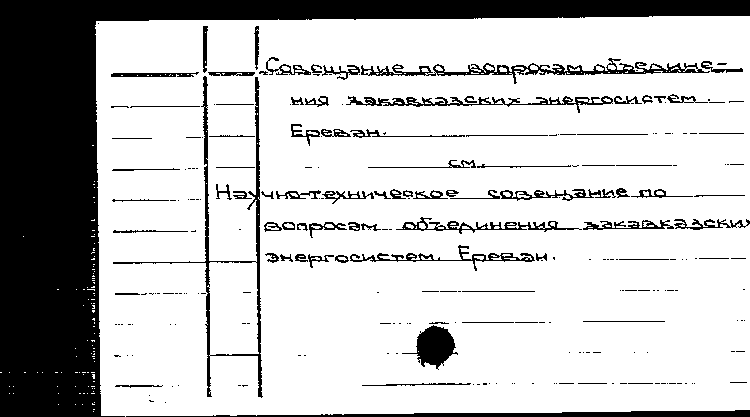 Совещание по вопросам объедине-
ния закавказских энергосистем.
Ереван.
см.
Научно-техническое совещание по
вопросам объединения закавказских
энергосистем. Ереван.